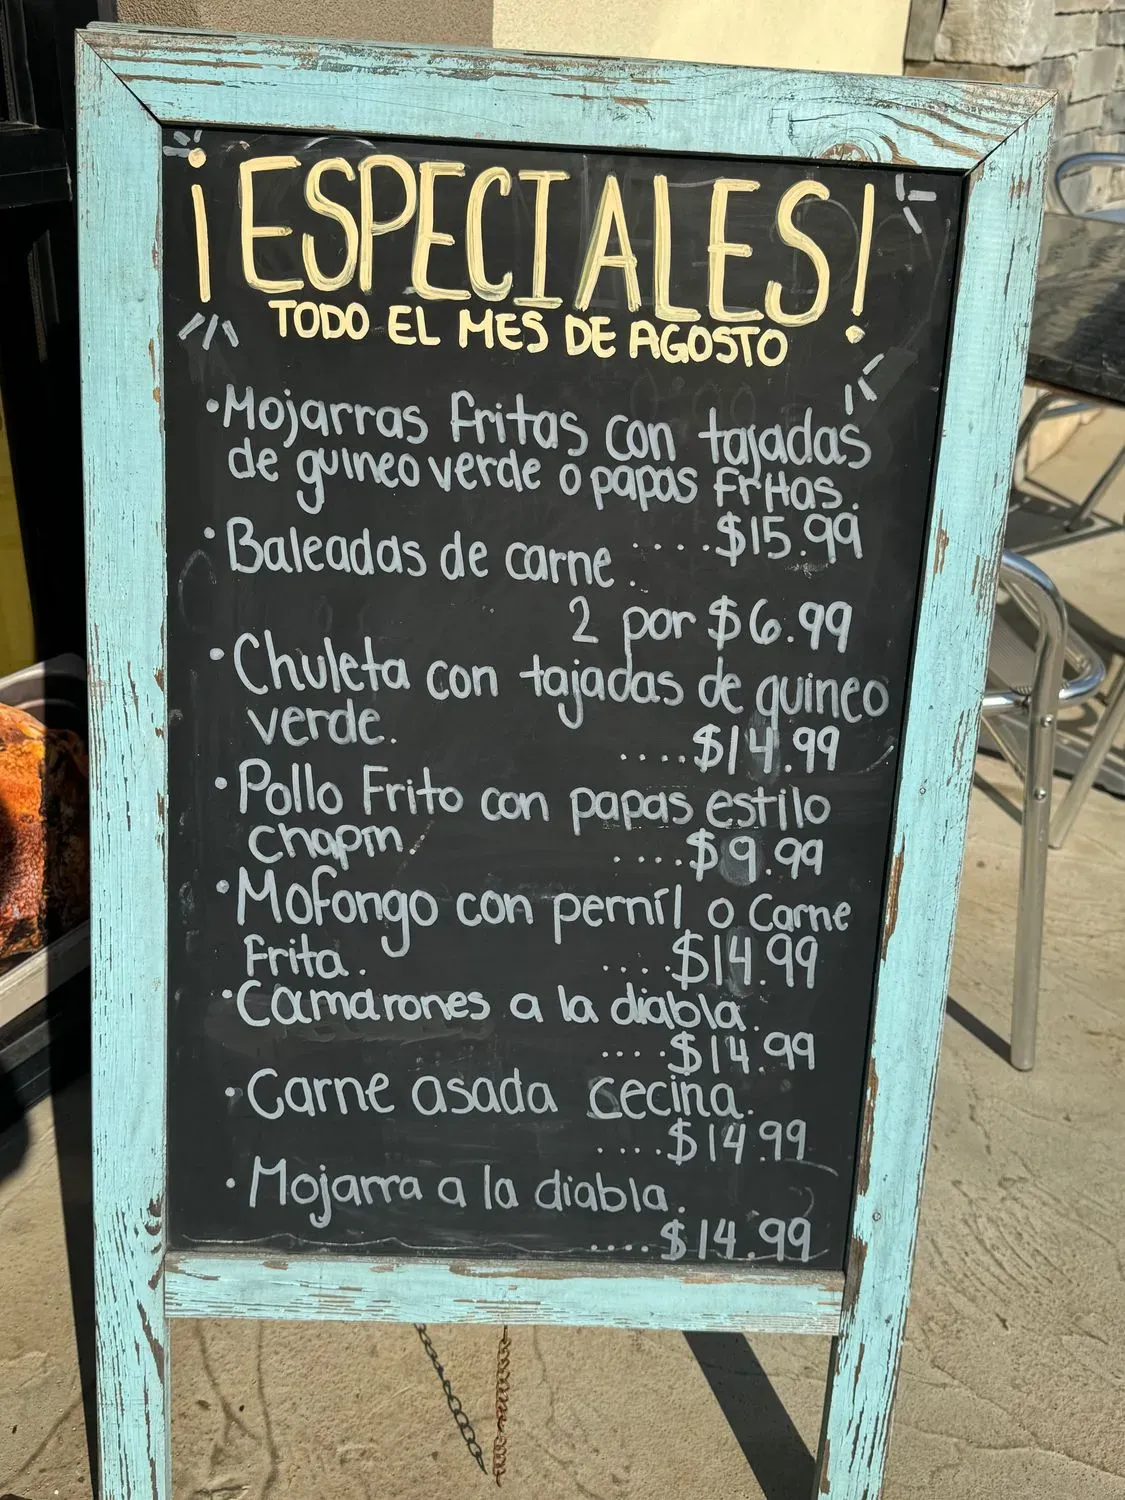 ¡ESPECIALES!
TODO EL MES DE AGOSTO
•Mojarras fritas con tajadas
de guineo verde o papas fritas.
....$15.99
•Baleadas de carne.
2 por $6.99
•Chuleta con tajadas de guineo
verde.
....$14.99
•Pollo Frito con papas estilo
chapin
....$9.99
•Mofongo con pernil o Carne
Frita.
....$14.99
•Camarones a la diabla.
....$14.99
•Carne asada cecina.
....$14.99
•Mojarra a la diabla.
....$14.99